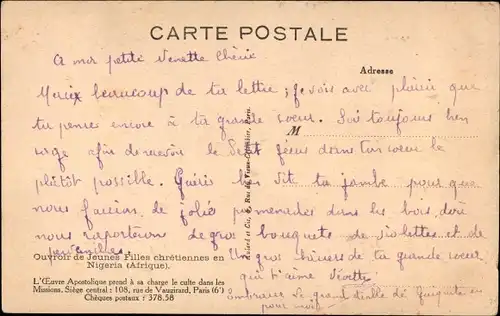 CARTE POSTALE
A ma petite Venette Chérie
Adresse
Merci beaucoup de ta lettre ; je vois avec plaisir que
tu pense encore à ta grande soeur. Soit toujours bien
sage afin de recevoir le Petit Jésus dans ton coeur le
M
plutôt possible. Guéris bien vit ta jambe pour que
nous fassions de jolies promenades dans les bois, dont
nous rapporterons de gros bouquets de violettes et de
pervenches.
Ouvroir de Jeunes Filles chrétiennes en
Nigeria (Afrique).
Un gros baisers de ta grande soeur
qui t'aime
L'Œuvre Apostolique prend à sa charge le culte dans les
Missions, Siège central : 108, rue de Vaugirard, Paris (6e)
Chèques postaux : 378.58
Embrasse le grand de
pour moi
Rue du Vieux-Colombier, Paris.